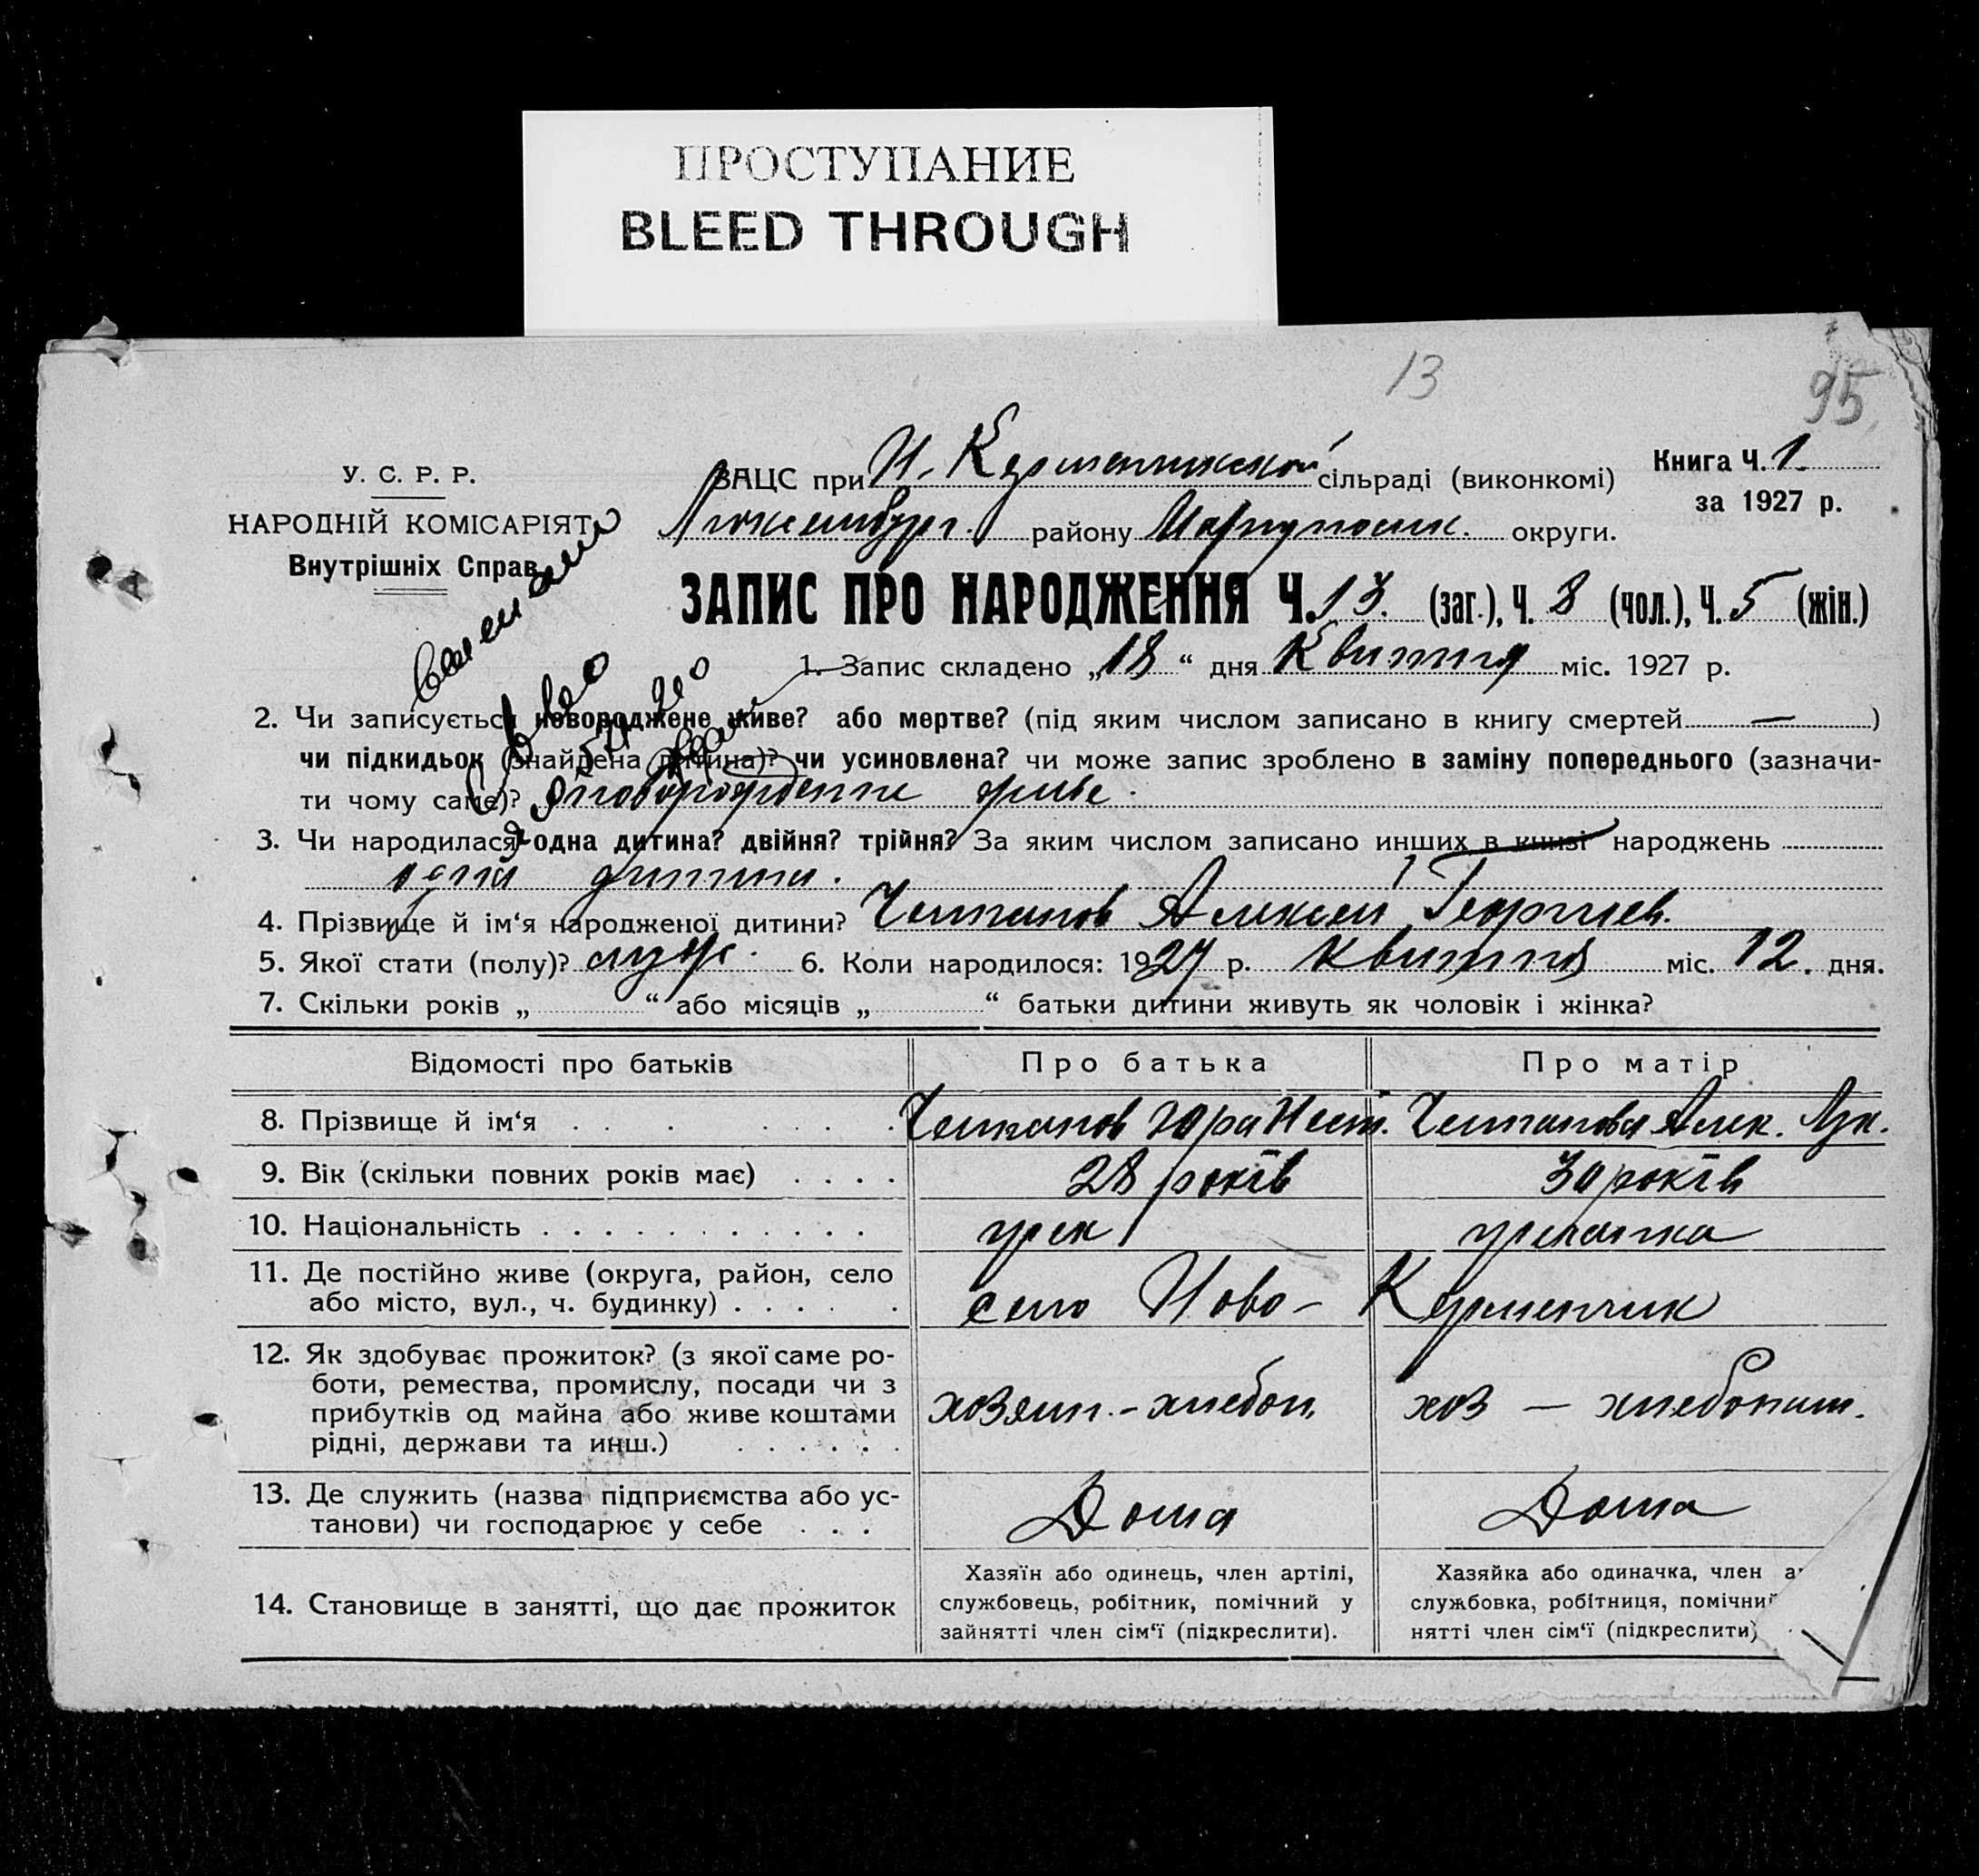 ПРОСТУПАНИЕ
BLEED THROUGH
13
95
У. С. Р. Р.
НАРОДНІЙ КОМІСАРІЯТ
Внутрішніх Справ
ЗАЦС при Н. Керменчикской сільраді (виконкомі)
Люксембург. району Мариупольск. округи.
Книга Ч. 1.
за 1927 р.
ЗАПИС ПРО НАРОДЖЕННЯ Ч. 13. (заг.), Ч. 8 (чол.), Ч. 5 (жін.)
1. Запис складено „18“ дня Квитня міс. 1927 р.
2. Чи записується новороджене живе? або мертве? (під яким числом записано в книгу смертей — )
чи підкидьок (знайдена дитина)? чи усиновлена? чи може запис зроблено в заміну попереднього (зазначи-
ти чому саме)? живе.
3. Чи народилася одна дитина? двійня? трійня? За яким числом записано инших в книзі народжень
одна дитина.
4. Прізвище й ім‘я народженої дитини? Челпанов Алексей Георгиев.
5. Якої стати (полу)? муж. 6. Коли народилося: 1927 р. Квитня міс. 12. дня.
7. Скільки років „ “ або місяців „ “ батьки дитини живуть як чоловік і жінка?
Відомості про батьків Про батька Про матір
8. Прізвище й ім‘я Челпанов Юра Челпанова Алек. Лук.
9. Вік (скільки повних років має) 28 років 30 років
10. Національність грек грекаика
11. Де постійно живе (округа, район, село
або місто, вул., ч. будинку) село Ново-Керменчик
12. Як здобуває прожиток? (з якої саме ро-
боти, ремества, промислу, посади чи з
прибутків од майна або живе коштами
рідні, держави та инш.)
хозяин.-хлебоп. хоз — хлебопаш.
13. Де служить (назва підприємства або ус-
танови) чи господарює у себе Дома Дома
14. Становище в занятті, що дає прожиток
Хазяїн або одинець, член артілі,
службовець, робітник, помічний у
зайнятті член сім‘ї (підкреслити).
Хазяйка або одиначка, член а
службовка, робітниця, помічни
нятті член сім‘ї (підкреслити)